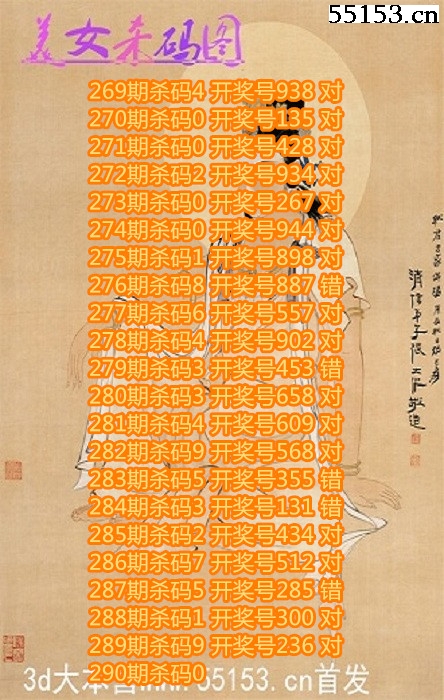 55153.cn
美女杀码图
269期杀码4 开奖号938 对
270期杀码0 开奖号135 对
271期杀码0 开奖号428 对
272期杀码2 开奖号934 对
273期杀码0 开奖号267 对
274期杀码0 开奖号944 对
275期杀码1 开奖号898 对
276期杀码8 开奖号887 错
277期杀码6 开奖号557 对
278期杀码4 开奖号902 对
279期杀码3 开奖号453 错
280期杀码3 开奖号658 对
281期杀码4 开奖号609 对
282期杀码9 开奖号568 对
283期杀码5 开奖号355 错
284期杀码3 开奖号131 错
285期杀码2 开奖号434 对
286期杀码7 开奖号512 对
287期杀码5 开奖号285 错
288期杀码1 开奖号300 对
289期杀码9 开奖号236 对
290期杀码0
3d大本营www.55153.cn首发